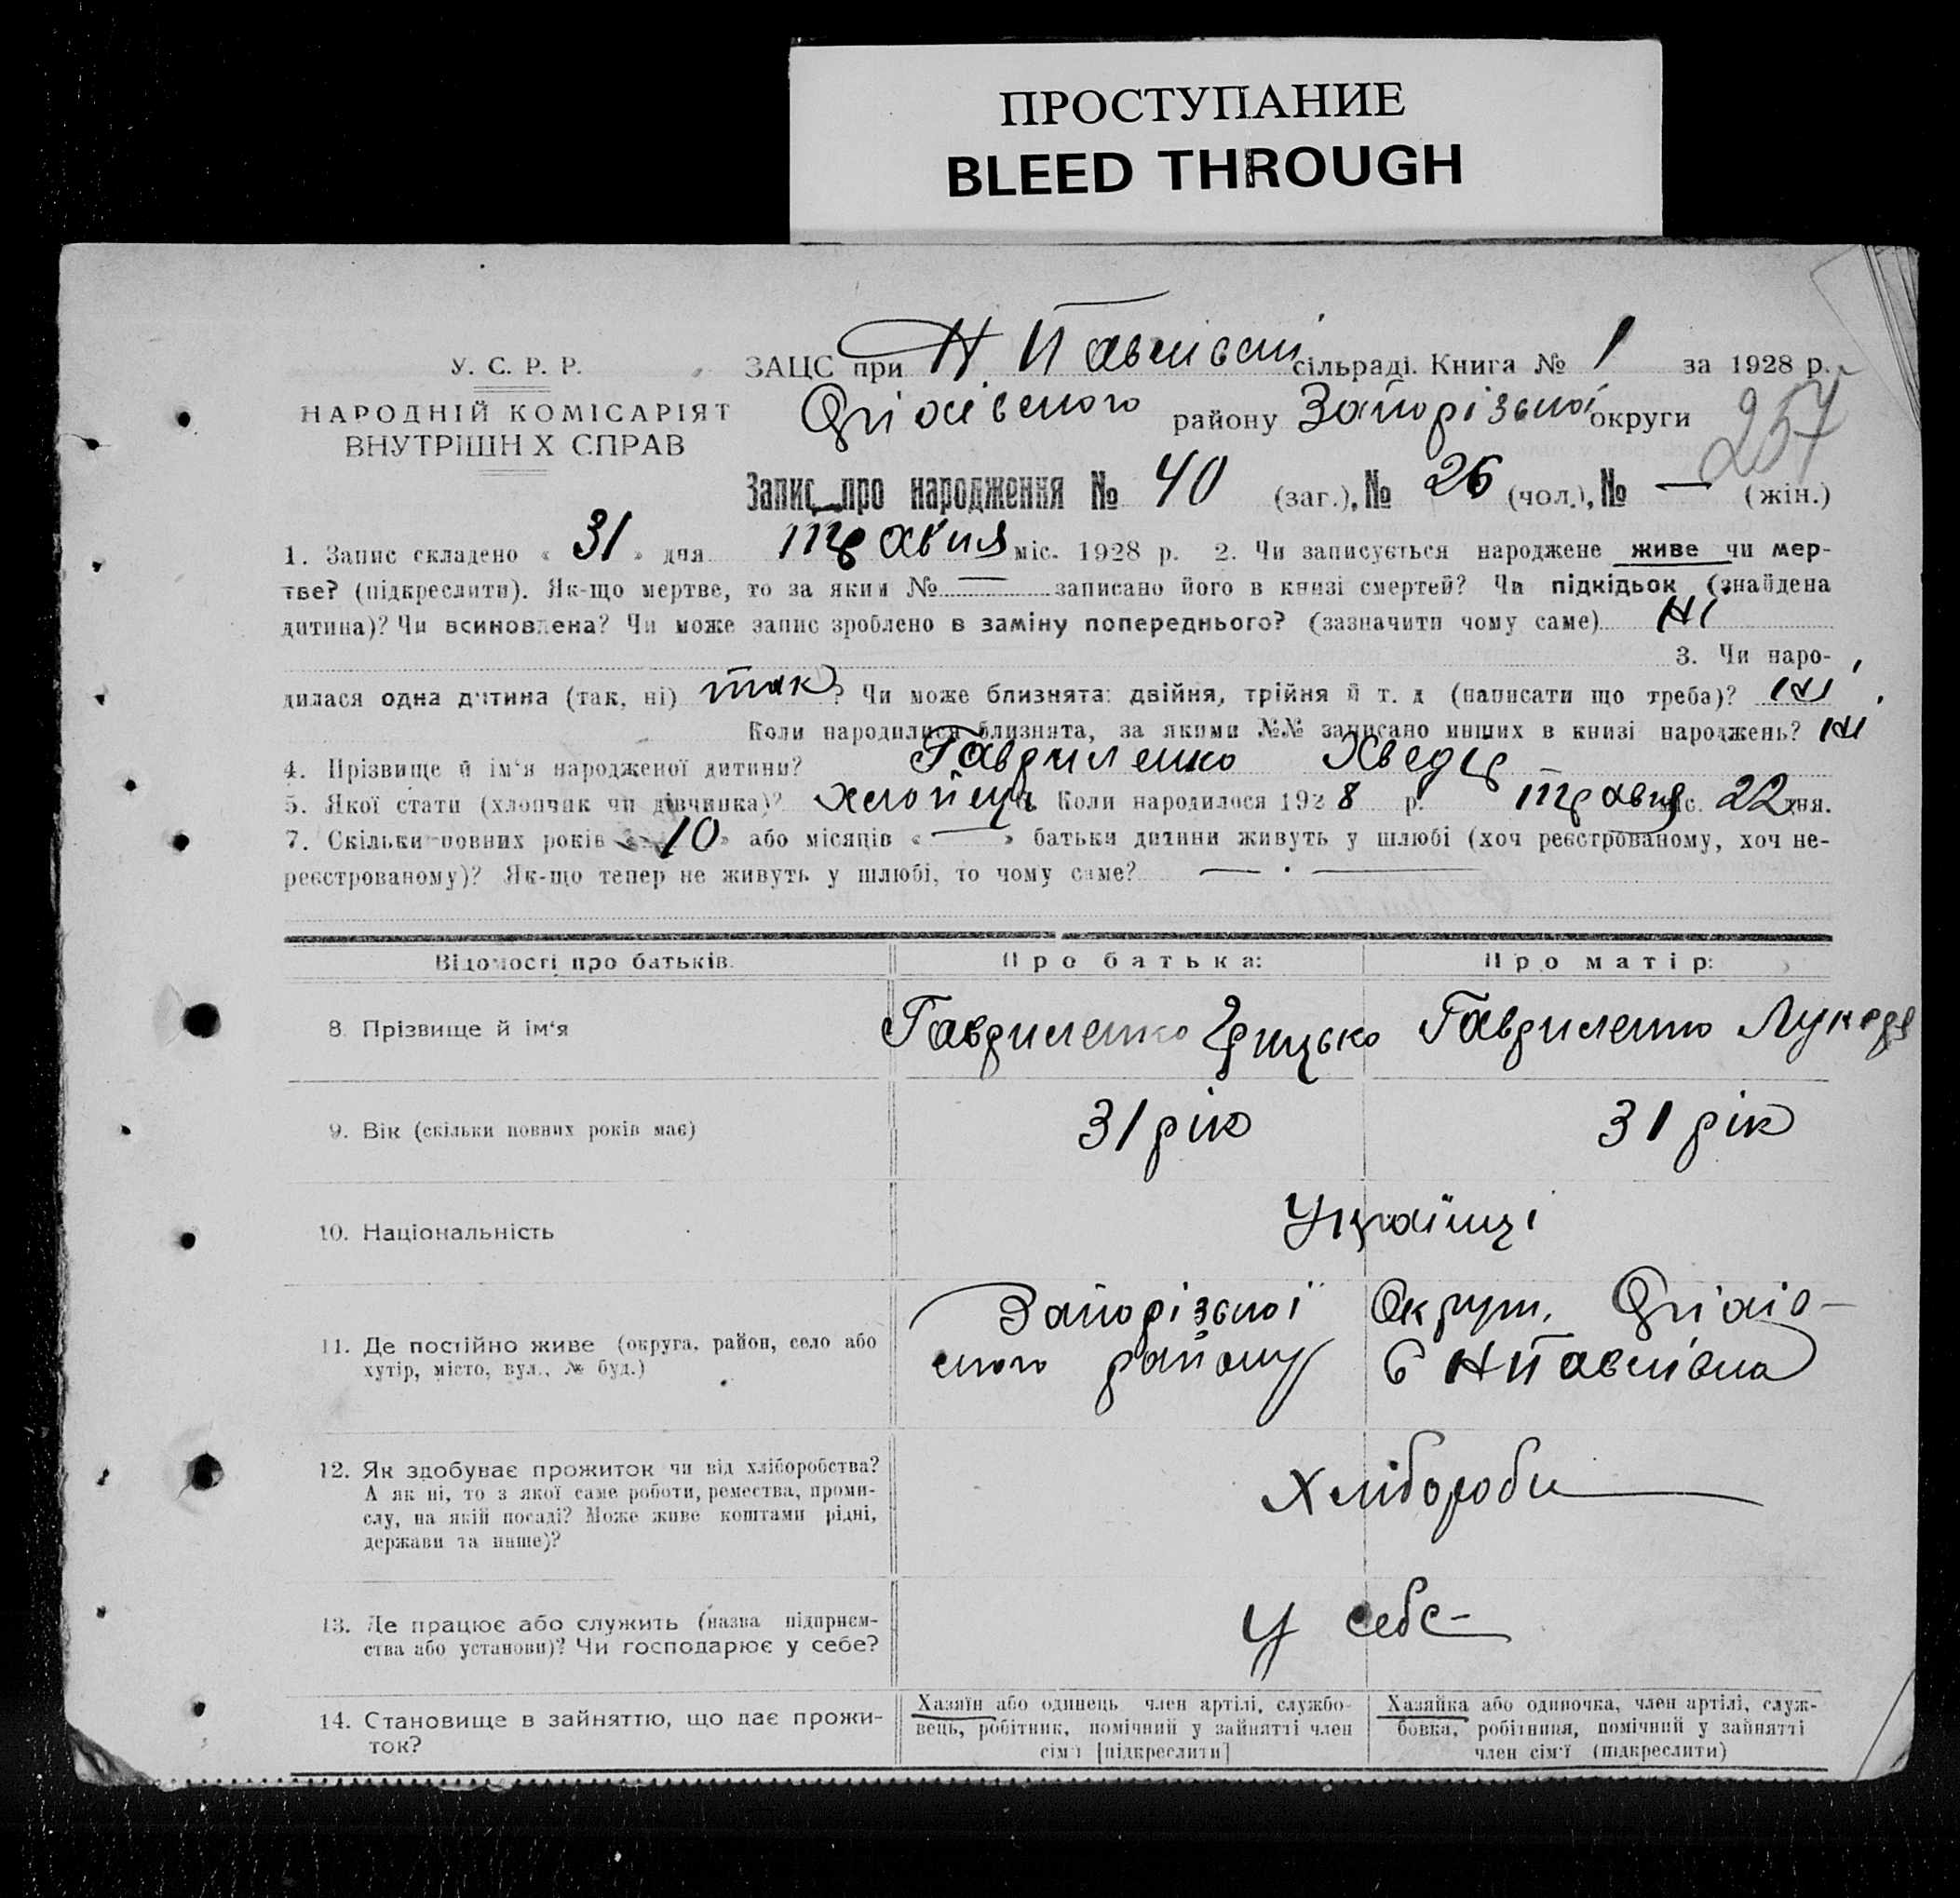 ПРОСТУПАНИЕ
BLEED THROUGH
У. С. Р. Р.
НАРОДНІЙ КОМІСАРІЯТ
ВНУТРІШН Х СПРАВ
ЗАЦС при Н Павлівск сільраді. Книга № 1 за 1928 р.
району Запорізької округи
257
Запис про народження № 40 (заг.), № 26 (чол.), № — (жін.)
1. Запис складено « 31 » дня Травня міс. 1928 р. 2. Чи записується народжене живе чи мер-
тве? (підкреслити). Як-що мертве, то за яким № — записано його в книзі смертей? Чи підкідьок (знайдена
дитина)? Чи всиновлена? Чи може запис зроблено в заміну попереднього? (зазначити чому саме) Ні
3. Чи наро-
дилася одна дитина (так, ні) так? Чи може близнята: двійня, трійня й т. д (написати що треба)? Ні
Коли народилися близнята, за якими №№ записано инших в книзі народжень? Ні
4. Прізвище й ім‘я народженої дитини? Гавриленко Хведір
5. Якої стати (хлопчик чи дівчинка)? хлопець 6. Коли народилося 1928 р. травня міс. 22 дня.
7. Скільки повних років « 10 » або місяців « — » батьки дитини живуть у шлюбі (хоч реєстрованому, хоч не-
реєстрованому)? Як-що тепер не живуть у шлюбі, то чому саме? — . —
Відомості про батьків.
Про батька:
Про матір:
8. Прізвище й ім‘я
Гавриленко Грицько
Гавриленко Лукеря
9. Вік (скільки повних років має)
31 рік
31 рік
10. Національність
Українці
11. Де постійно живе (округа, район, село або
хутір, місто, вул., № буд.)
Запорізької Округи,
ского району С НПавлівка
12. Як здобуває прожиток чи від хліборобства?
А як ні, то з якої саме роботи, ремества, проми-
слу, на якій посаді? Може живе коштами рідні,
держави та инше)?
Хлібороби
13. Де працює або служить (назва підприєм-
ства або установи)? Чи господарює у себе?
У себе
14. Становище в зайняттю, що дає прожи-
ток?
Хазяїн або одинець член артілі, службо-
вець, робітник, помічний у зайнятті член
сім‘ї [підкреслити]
Хазяйка або одиночка, член артілі, служ-
бовка, робітниця, помічний у зайнятті
член сім‘ї (підкреслити)